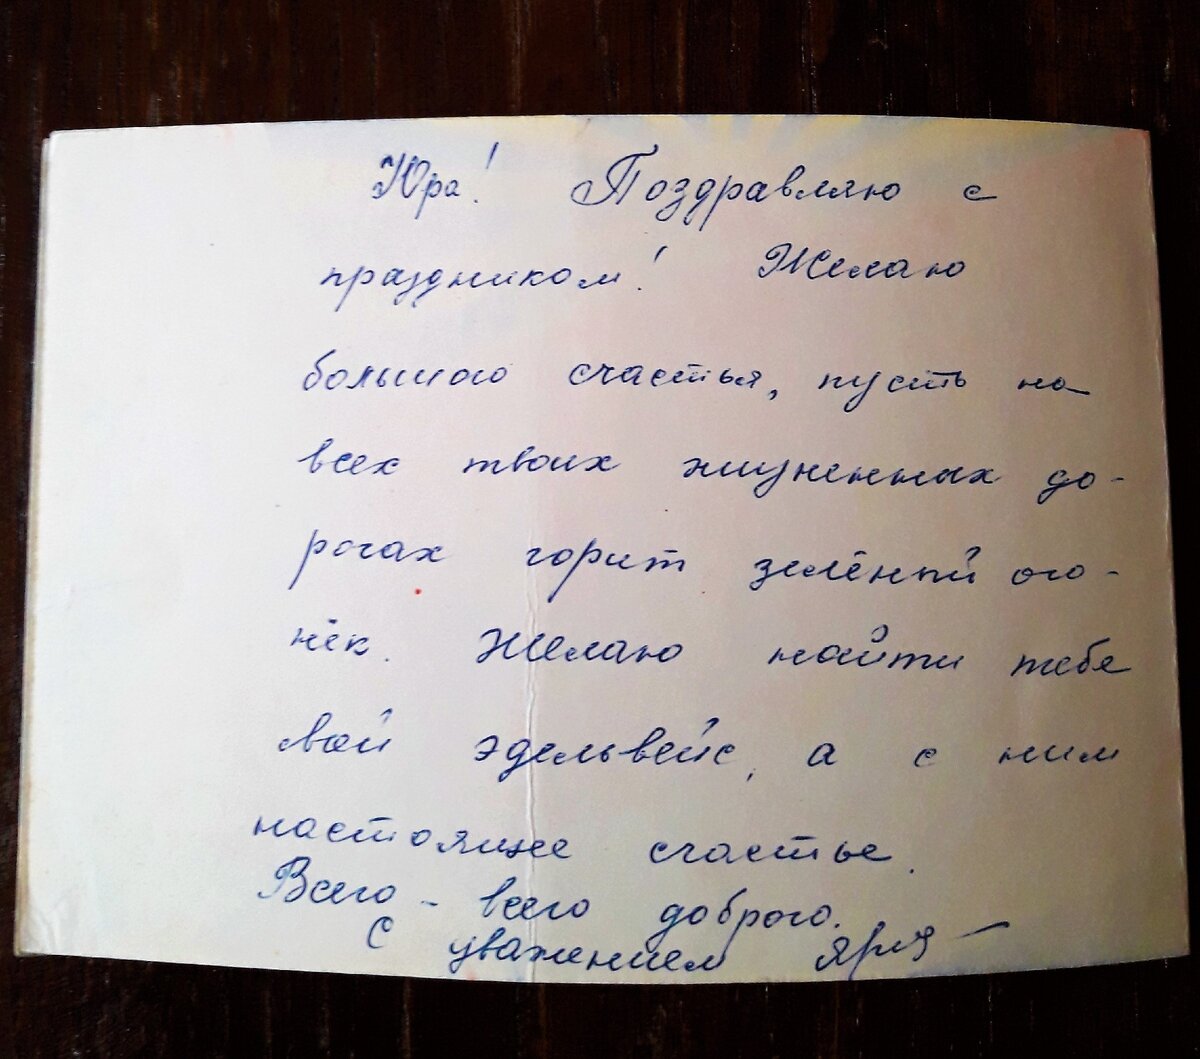 Юра! Поздравляю с
праздником! Желаю
большого счастья, пусть на
всех твоих жизненных до-
рогах горит зелёный ого-
нёк. Желаю найти тебе
свой эдельвейс, а с ним
настоящее счастье.
Всего - всего доброго.
С уважением